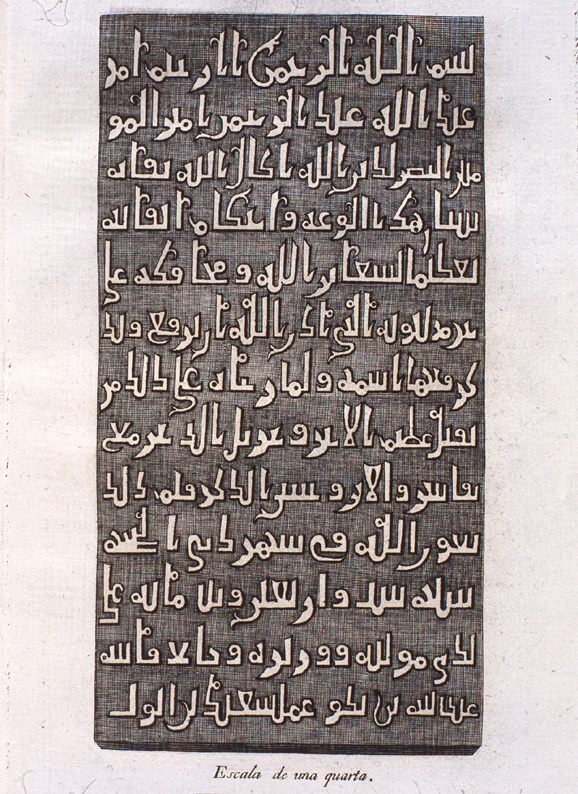 بسم الله الرحمن الرحيم امر
عبد الله عبد الرحمن امير المو
منين الناصر لدين الله اطال الله بقاه
ببنيان هذا الوجه واحكام اتقانه
تعظيما لشعاير الله ومحافظة على
حرمة بيوته التي اذن الله ان ترفع ويذ
كر فيها اسمه ولما دعاه على ذلك من
تقبل عظيم الاجر وجزيل الذخر مع
بقا شرف الاثر وحسن الذكر فتم ذلك
بعون الله في شهر ذي الحجة
سنة ست واربعين وثلث مائة على
يدي مولاه ووزيره وصاحب مبانيه
عبد الله بن بدر عمل سعيد بن ايوب
Escala de una quarta.